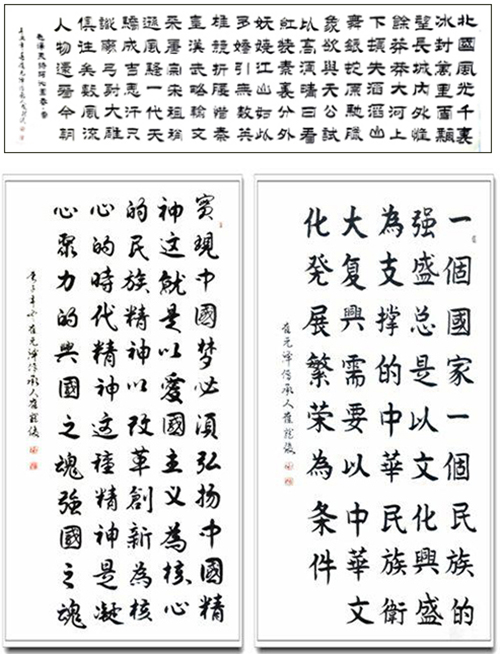 北國風光千裏
冰封萬里雪飄
望長城內外惟
餘莽莽大河上
下頓失滔滔山
舞銀蛇原馳蠟
象欲與天公試
比高須晴日看
紅裝素裹分外
妖嬈江山如此
多嬌引無數英
雄競折腰惜秦
皇漢武略輸文
采唐宗宋祖稍
遜風騷一代天
驕成吉思汗只
識彎弓射大雕
俱往矣數風流
人物還看今朝
實現中國梦必須弘扬中國精
神這就是以愛國主义為核心
的民族精神以改革創新為核
心的時代精神這種精神是凝
心聚力的興國之魂強國之魂
一個國家一個民族的
强盛总是以文化興盛
為支撑的中華民族衛
大复興需要以中華文
化発展繁荣為条件